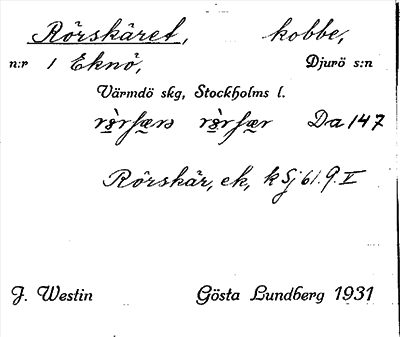 Rörskäret, kobbe,
n:r 1 Eknö, Djurö s:n
Värmdö skg, Stockholms l.
Da 147
Rörskär, ek, k Sj 61. 9. II
J. Westin Gösta Lundberg 1931